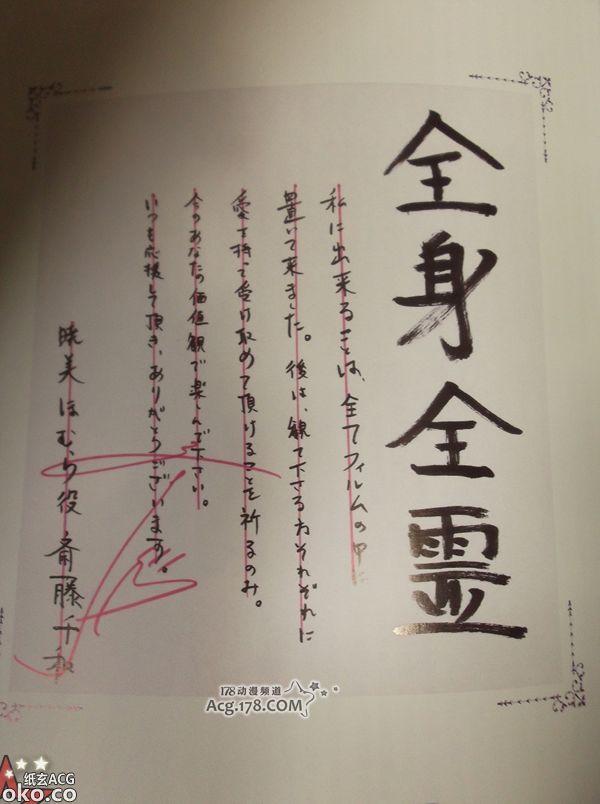 全身全霊
私に出来ることは、全てフィルムの中に
置いて来ました。後は、観て下さる方それぞれに
愛を持って受け取めて頂けることを祈るのみ。
今のあなたの価値観で楽しんで下さい。
いつも応援して頂き、ありがとうございます。
暁美ほむら役 斎藤千和
178动漫频道
Acg.178.COM
纸玄ACG
oko.co